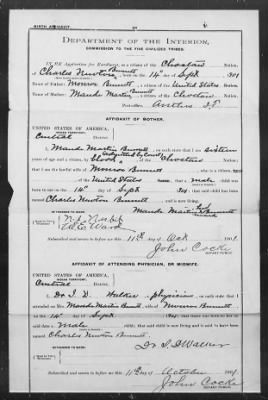 BIRTH AFFIDAVIT.
DEPARTMENT OF THE INTERIOR,
COMMISSION TO THE FIVE CIVILIZED TRIBES.
IN RE Application for Enrollment, as a citizen of the Choctaw Nation,
of Charles Newton Burnett, born on the 14 day of Sept, 1901
Name of Father: Monroe Burnett a citizen of the United States Nation.
Name of Mother: Maude Martin Burnett a citizen of the Choctaw Nation.
Postoffice, Antlers I.T.
AFFIDAVIT OF MOTHER.
UNITED STATES OF AMERICA,
INDIAN TERRITORY,
Central District.
I, Maude Martin Burnett, on oath state that I am sixteen
years of age and a citizen, by blood, of the Choctaw Nation;
that I am the lawful wife of Monroe Burnett, who is a citizen
of the United States; that a male child was
born to me on 14th day of Sept, 1901; that said child has been
named Charles Newton Burnett, and is now living.
Maude Martin Burnett
Subscribed and sworn to before me this 11th day of Oct 1901.
John Cocke
NOTARY PUBLIC.
AFFIDAVIT OF ATTENDING PHYSICIAN, OR MIDWIFE.
UNITED STATES OF AMERICA,
INDIAN TERRITORY,
Central District.
I, Dr. I. D. Walker, a physician, on oath state that I
attended on Mrs. Maude Martin Burnett, wife of Monroe Burnett
on the 14 day of Sept, 1901; that there was born to her on said
date a male child; that said child is now living and is said to have been
named Charles Newton Burnett.
Dr. I. D. Walker
Subscribed and sworn to before me this 11th day of October 1901.
John Cocke
NOTARY PUBLIC.